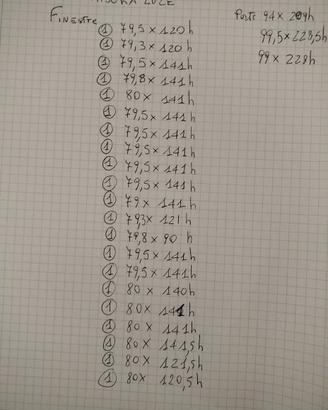 LUCE
FINESTRE
① 79,5 x 120h
① 79,3 x 120h
① 79,5 x 141h
① 79,8 x 141h
① 80 x 141h
① 79,5 x 141h
① 79,5 x 141h
① 79,5 x 141h
① 79,5 x 141h
① 79,5 x 141h
① 79 x 141h
① 79,3 x 121h
① 79,8 x 90 h
① 79,5 x 141h
① 79,5 x 141h
① 80 x 140h
① 80 x 141h
① 80 x 141h
① 80 x 141,5h
① 80 x 121,5h
① 80 x 120,5h
Porte 94 x 209h
99,5 x 228,5h
99 x 228h